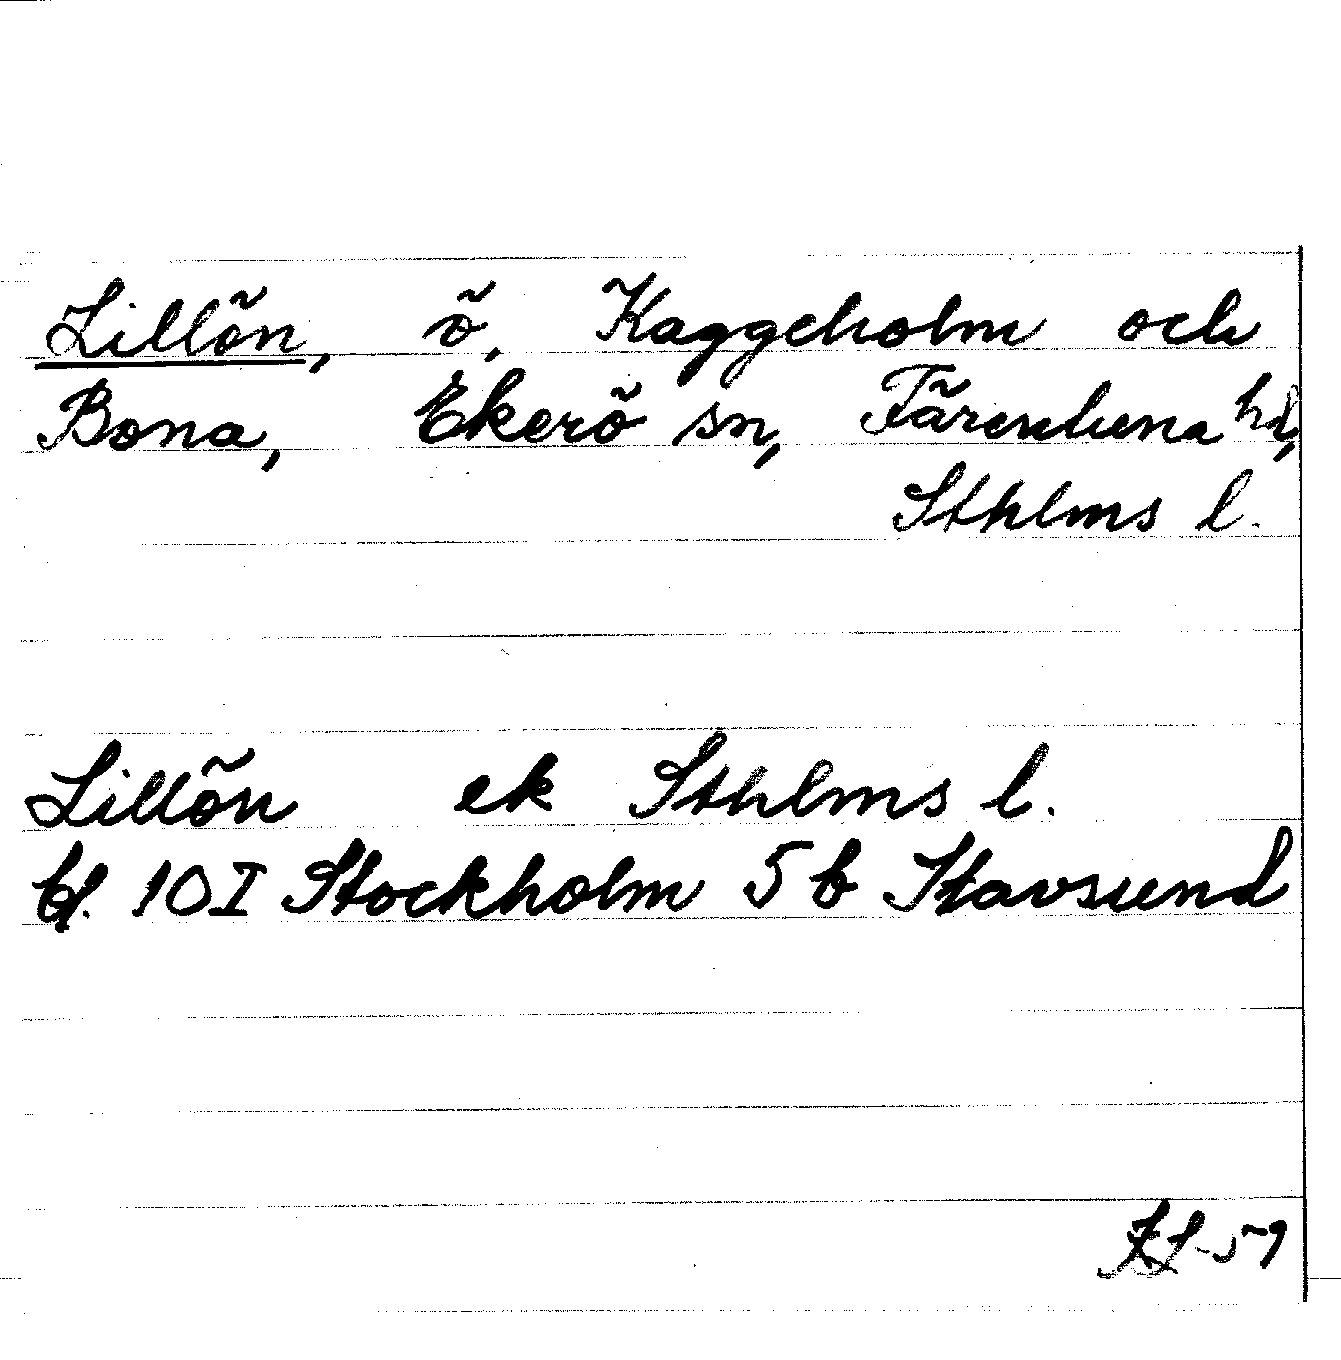 Lillön, ö, Kaggeholm och
Bona, Ekerö sn, Färentuna hd,
Sthlms l.
Lillön ek Sthlms l.
bl. 10I Stockholm 5 b Stavsund
-59